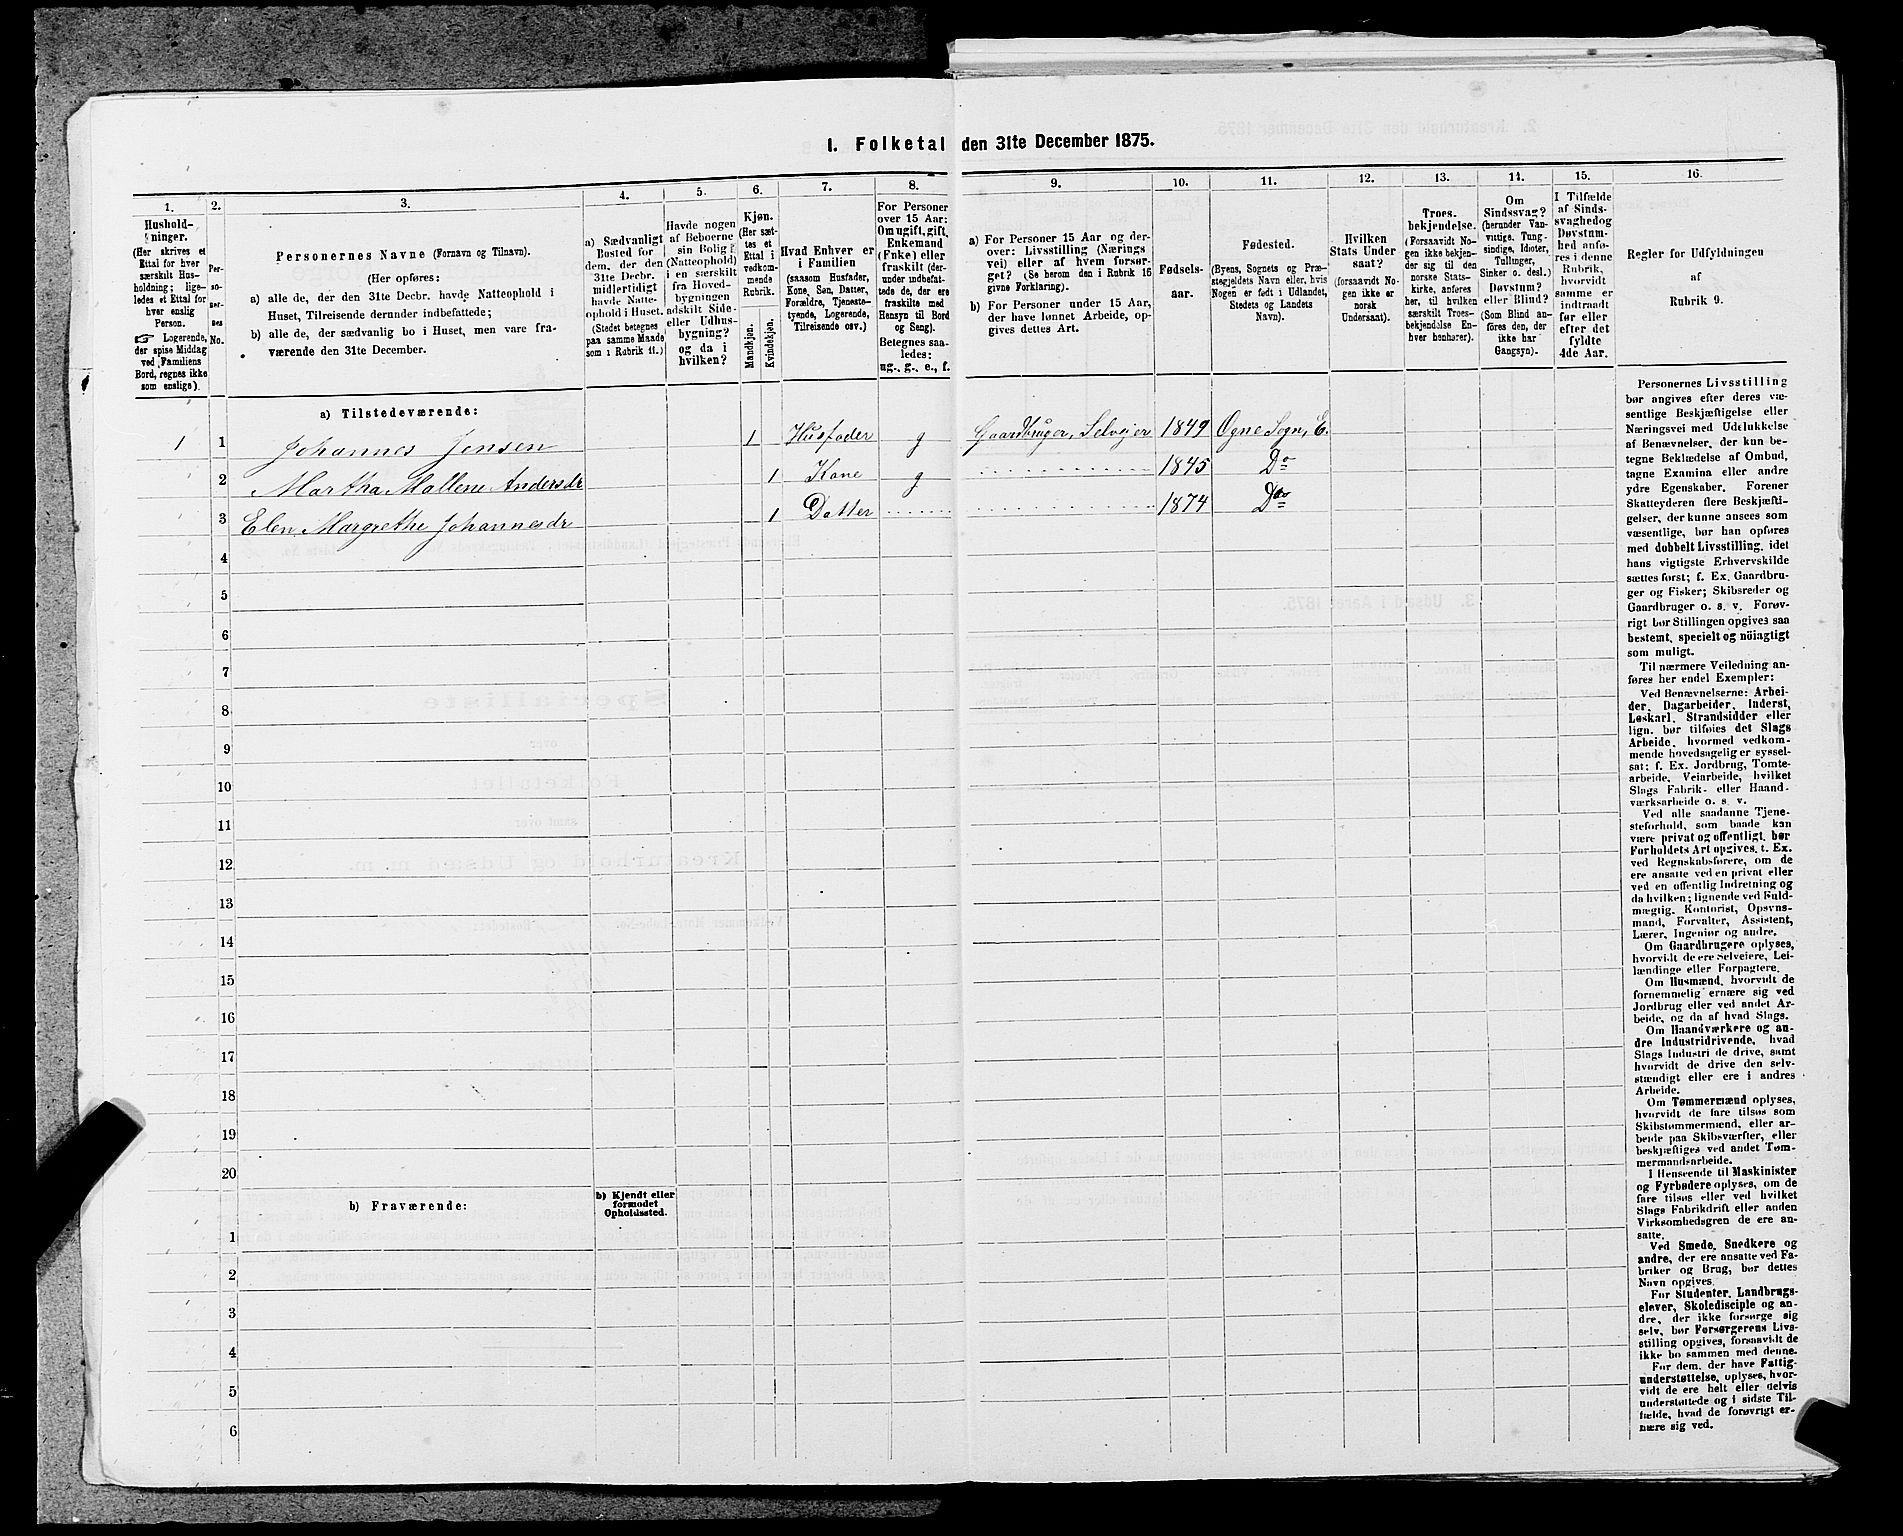 1. Folketal den 31te December 1875.
1.
2.
3.
4.
5.
6.
7.
8.
9.
10.
11.
12.
13.
14.
15.
16.
Hushold-
ninger.
(Her skrives et
Ettal for hver
særskilt Hus-
holdning; lige-
ledes et Ettal for
hver enslig
Person.
☞ Logerende,
der spise Middag
ved Familiens
Bord, regnes ikke
som enslige).
Per-
so-
ner-
nes
No.
Personernes Navne (Fornavn og Tilnavn).
(Her opføres:
a) alle de, der den 31te Decbr. havde Natteophold i
Huset, Tilreisende derunder indbefattede;
b) alle de, der sædvanlig bo i Huset, men vare fra-
værende den 31te December.
a) Sædvanligt
Bosted for
dem, der den
31te Decbr.
midlertidigt
havde Natte-
ophold i Huset.
(Stedet betegnes
paa samme Maade
som i Rubrik 11.)
Havde nogen
af Beboerne
sin Bolig
(Natteophold)
i en særskilt
fra Hoved-
bygningen
adskilt Side-
eller Udhus-
bygning?
og da i
hvilken?
Kjøn.
(Her sæt-
tes et
Ettal i
vedkom-
mende
Rubrik.
Mandkjøn.
Kvindekjøn.
Hvad Enhver er
i Familien
(saasom Husfader,
Kone, Søn, Datter,
Forældre, Tjeneste-
tyende, Logerende,
Tilreisende osv.)
For Personer
over 15 Aar:
Om ugift, gift,
Enkemand
(Enke) eller
fraskilt (der-
under indbefat-
tede de, der ere
fraskilte med
Hensyn til Bord
og Seng).
Betegnes saa-
ledes:
ug., g., e., f.
a) For Personer 15 Aar og der-
over: Livsstilling (Nærings
vei) eller af hvem forsør-
get? (Se herom den i Rubrik 16
givne Forklaring).
b) For Personer under 15 Aar,
der have lønnet Arbeide, op-
gives dettes Art.
Fødsels-
aar.
Fødested.
(Byens, Sognets og Præ-
stegjeldets Navn eller, hvis
Nogen er født i Udlandet,
Stedets og Landets
Navn).
Hvilken
Stats Under
saat?
(forsaavidt No-
gen ikke er
norsk
Undersaat).
Troes-
bekjendelse.
(Forsaavidt No-
gen ikke bekjen-
der sig til den
norske Stats-
kirke, anføres
her, til hvilken
særskilt Troes-
bekjendelse En-
hver henhører).
Om
Sindssvag?
(herunder Van-
vittige, Tung-
sindige, Idioter,
Tullinger,
Sinker o. desl.)
Døvstum?
eller Blind?
(Som Blind an-
føres den, der
ikke har
Gangsyn).
I Tilfælde
af Sinds-
svaghed og
Døvstum-
hed anfø-
res i denne
Rubrik,
hvorvidt
samme er
indtraadt
før eller
efter det
fyldte
4de Aar.
Regler for Udfyldningen
af
Rubrik 9.
a) Tilstedeværende:
1 1 Johannes Jensen 1 Husfader g Gaardbruger, Selvejer 1849 Ogne Sogn, E.
2 Martha Mallene Andersdr 1 Kone g 1845 Do
3 Elen Margrethe Johannesdr 1 Datter 1874 Do
4
5
6
7
8
9
10
11
12
13
14
15
16
17
18
19
20
b) Fraværende:
b) Kjendt eller
formodet
Opholdssted.
1
2
3
4
5
6
Personernes Livsstilling
bør angives efter deres væ-
sentlige Beskjæftigelse eller
Næringsvei med Udelukkelse
af Benævnelser, der kun be-
tegne Beklædelse af Ombud,
tagne Examina eller andre
ydre Egenskaber. Forener
Skatteyderen flere Beskjæfti-
gelser, der kunne ansees som
væsentlige, bør han opføres
med dobbelt Livsstilling, idet
hans vigtigste Erhvervskilde
sættes forst; f. Ex. Gaardbru-
ger og Fisker; Skibsreder og
Gaardbruger o. s. v. Forøv-
rigt bør Stillingen opgives saa
bestemt, specielt og nöiagtigt
som muligt.
Til nærmere Veiledning an-
føres her endel Exempler:
Ved Benævnelserne: Arbei-
der, Dagarbeider, Inderst,
Løskarl, Strandsidder eller
lign. bør tilføies det Slags
Arbeide, hvormed vedkom-
mende hovedsagelig er syssel-
sat; f. Ex. Jordbrug, Tomte-
arbeide, Veiarbeide, hvilket
Slags Fabrik- eller Haand-
værksarbeide o. s. v.
Ved alle saadanne Tjene-
steforhold, som baade kan
være privat og offentligt, bør
Forholdets Art opgives, f. Ex.
ved Regnskabsførere, om de
ere ansatte ved en privat eller
ved en offentlig Indretning og
da hvilken; lignende ved Fuld-
mægtig, Kontorist, Opsyns-
mand, Forvalter, Assistent,
Lærer, Ingeniør og andre.
Om Gaardbrugere oplyses,
hvorvidt de ere Selveiere, Lei-
lændinge eller Forpagtere.
Om Husmænd, hvorvidt de
fornemmelig ernære sig ved
Jordbrug eller ved andet Ar-
beide, og da af hvad Slags.
Om Haandværkere og an-
dre Industridrivende, hvad
Slags Industri de drive, samt
hvorvidt de drive den selv-
stændigt eller ere i andres
Arbeide.
Om Tømmermænd oplyses,
hvorvidt de fare tilsøs som
Skibstømmermænd, eller ar-
beide paa Skibsværfter, eller
beskjæftiges ved andet Tøm-
mermandsarbeide.
I Henseende til Maskinister
og Fyrbødere oplyses, om de
fare tilsøs eller ved hvilket
Slags Fabrikdrift eller anden
Virksomhedsgren de ere an-
satte.
Ved Smede, Snedkere og
andre, der ere ansatte ved Fa-
briker og Brug, bør dettes
Navn opgives.
For Studenter, Landbrugs-
elever, Skoledisciple og an-
dre, der ikke forsørge sig
selv, bør Forsørgerens Livs-
stilling opgives, forsaavidt de
ikke bo sammen med denne.
For dem, der have Fattig-
understøttelse, oplyses, hvor-
vidt de ere helt eller delvis
understøttede og i sidste Til-
fælde, hvad de forøvrigt er-
nære sig ved.